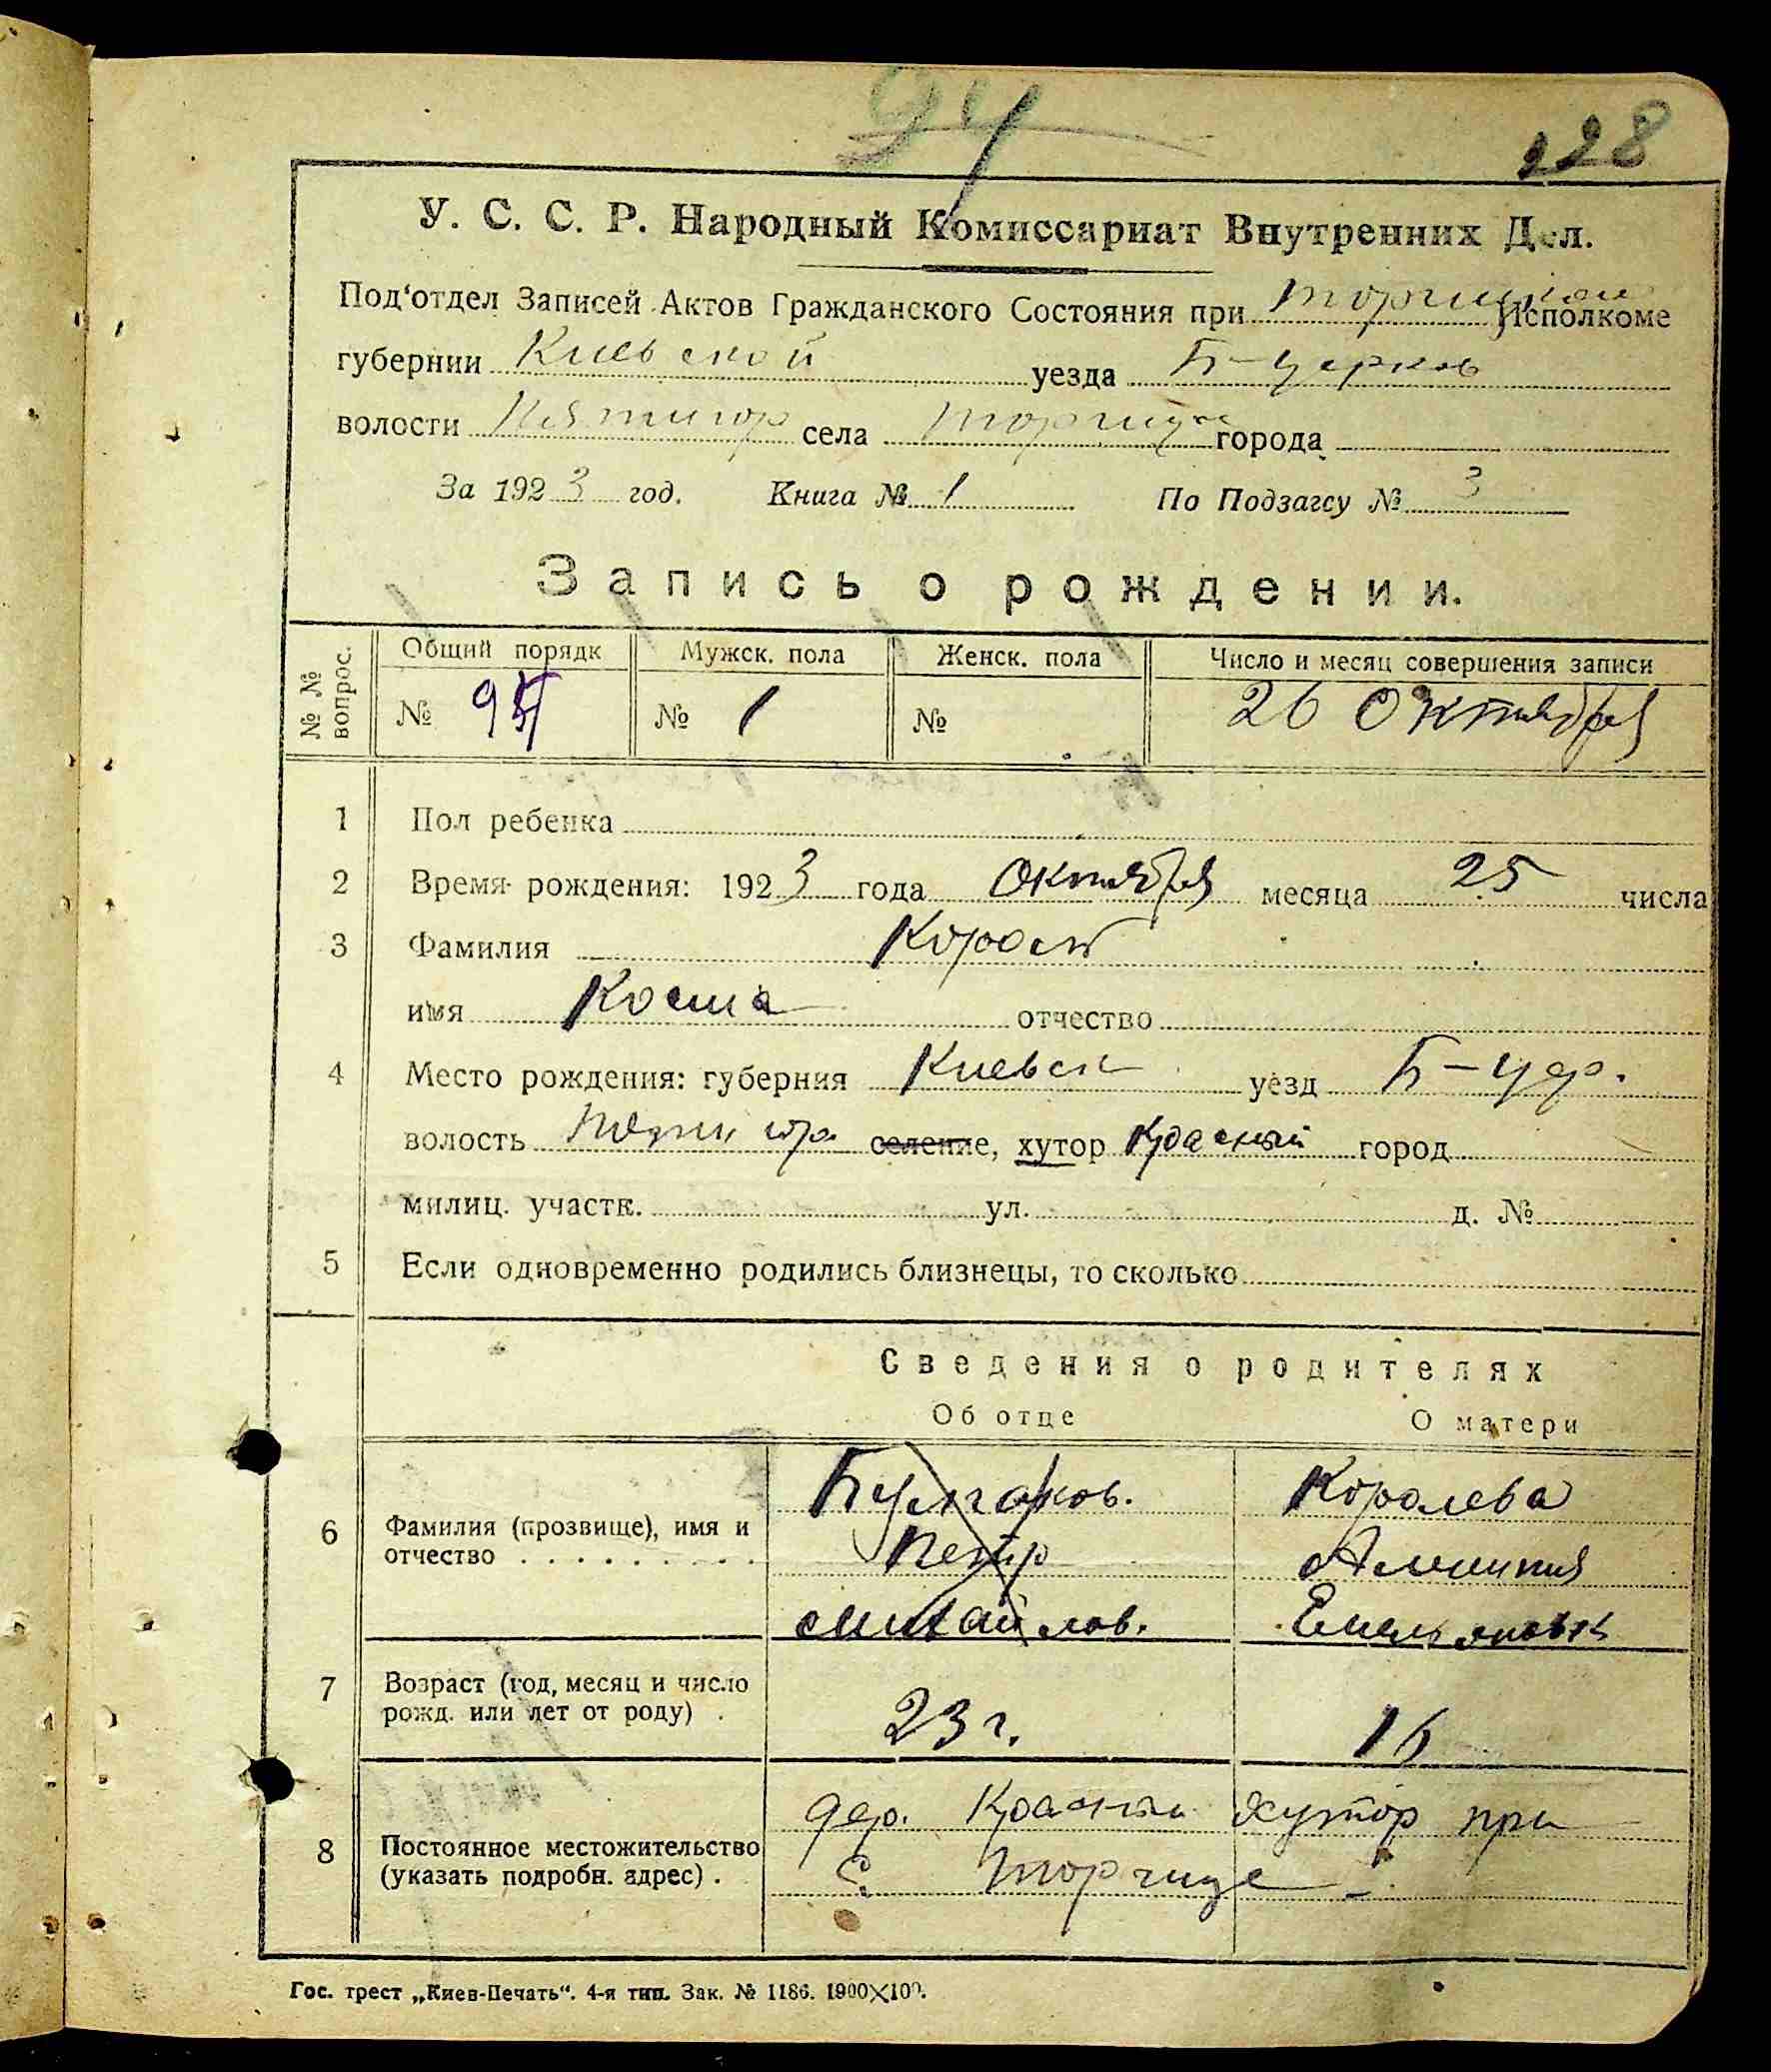 94
228
У. С. С. Р. Народный Комиссариат Внутренних Дел.
Под'отдел Записей Актов Гражданского Состояния при Торчицком Исполкоме
губернии Киевской уезда Б-Церков
волости Пятигор села Торчица города
За 1923 год. Книга № 1 По Подзагсу № 3
Запись о рождении.
№ № вопрос. Общий порядк Мужск. пола Женск. пола Число и месяц совершения записи
№ № 1 № 26 Октября
1 Пол ребенка
2 Время рождения: 1923 года Октября месяца 25 числа
3 Фамилия
имя Косма отчество
4 Место рождения: губерния Киевск уезд Б-Цер.
волость Пятигор. селение, хутор Красный город
милиц. участк. ул. д. №
5 Если одновременно родились близнецы, то сколько
Сведения о родителях
Об отце О матери
6 Фамилия (прозвище), имя и отчество
Булгаков. Королева
Петр
Михайлов. Емельяновна
7 Возраст (год, месяц и число рожд. или лет от роду) . 23 г. 16
8 Постоянное местожительство (указать подробн. адрес) .
дер. Красный хутор при
с. Торчице
Гос. трест „Киев-Печать“. 4-я тип. Зак. № 1186. 1900×100.